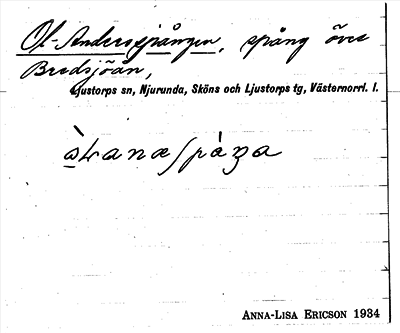 Ol-Andersspången, spång över
Bredsjöån,
Ljustorps sn, Njurunda, Sköns och Ljustorps tg, Västernorrl. l.
ANNA-LISA ERICSON 1934